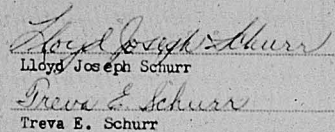 Lloyd Joseph Schurr
Lloyd Joseph Schurr
Treva E. Schurr
Treva E. Schurr